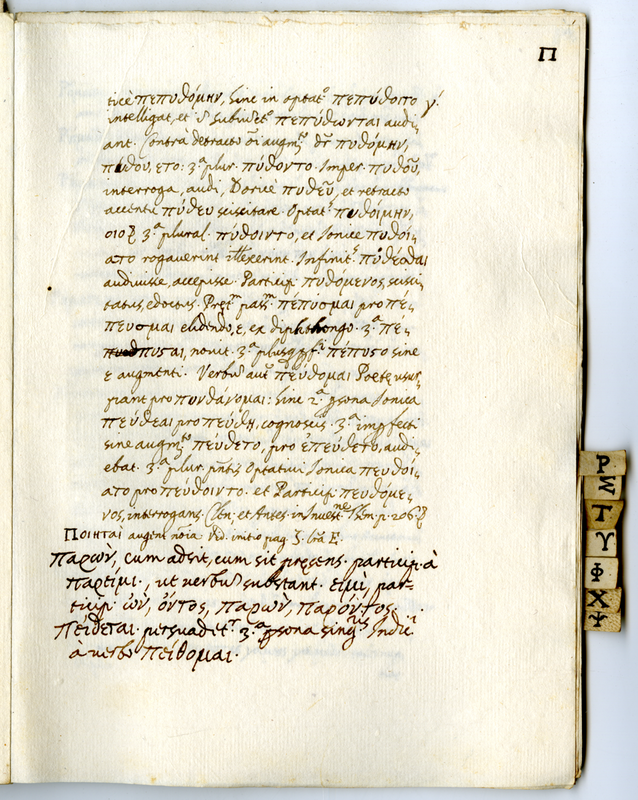 Π
tice πεπυθόμην, sine in optat. πεπύθοιτο γ.
intelligat, et subindet. πεπύθωνται audi-
ant. Contra detracto augmto dr πυθόμην,
πύθου, ετο. 3.a plur. πύθοντο. Imper. πυθοῦ,
interroga, audi, Doricè πυθεῦ, et retracto
accentu πύθευ sciscitare. Optat. πυθοίμην,
οιο 3.a plural. πύθοιντο, et Ionice πυθοί-
ατο rogaverint Infinit. πυθέσθαι
audivisse, accepisse. Particip. πυθόμενος, scisci-
tatus, edoctus. Pret. pass. πέπυσμαι pro πέ-
πευσμαι elidendo, ε, ex diphthongo. 3.a πέ-
πυσται, novit. 3.a plusqpfti πέπυστο sine
ε augmenti. Verbu aut πεύθομαι Poetę usur-
pant pro πυνθάνομαι: hinc 2.a psona Ionica
πεύθεαι pro πεύθη, cognoscis. 3.a impfecti
sine augmto πεύθετο, pro ἐπεύθετο, audi-
ebat. 3.a plur. pntis Optativi Ionica πευθοί-
ατο pro πεύθοιντο. et Particip. πευθόμε-
νος, interrogans. et Antes. in Invest. Thm. p. 206.
Ποιηται augent Vid. initio pag. Σ. E.
Παρων, cum adsit, cum sit pręsens. particip. à
πάρειμι., ut verbu substant. ειμὶ, par-
ticip. ὼν, ὄντος, παρών, παρόντος.
Πείθεται. persuadetr 3.a psona singris Indici
à verbo πείθομαι.
Ρ
Σ
Τ
Υ
Φ
Χ
Ψ